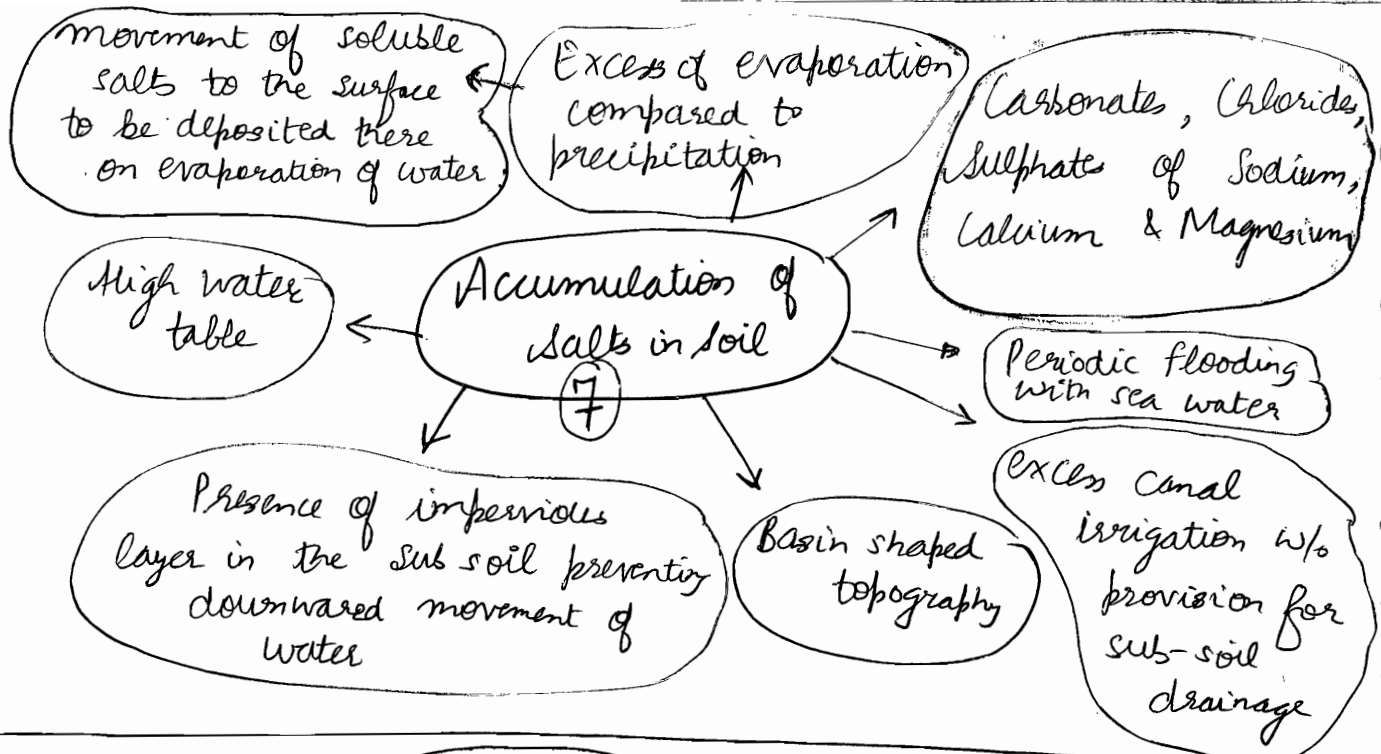 movement of soluble
salts to the surface
to be deposited there
on evaporation of water
Excess of evaporation
compared to
precipitation
Carbonates, Chlorides,
Sulphates of Sodium,
Calcium & Magnesium
High water
table
Accumulation of
salts in soil
7
Periodic flooding
with sea water
Presence of impervious
layer in the sub soil preventing
downward movement of
water
Basin shaped
topography
excess canal
irrigation w/o
provision for
sub-soil
drainage